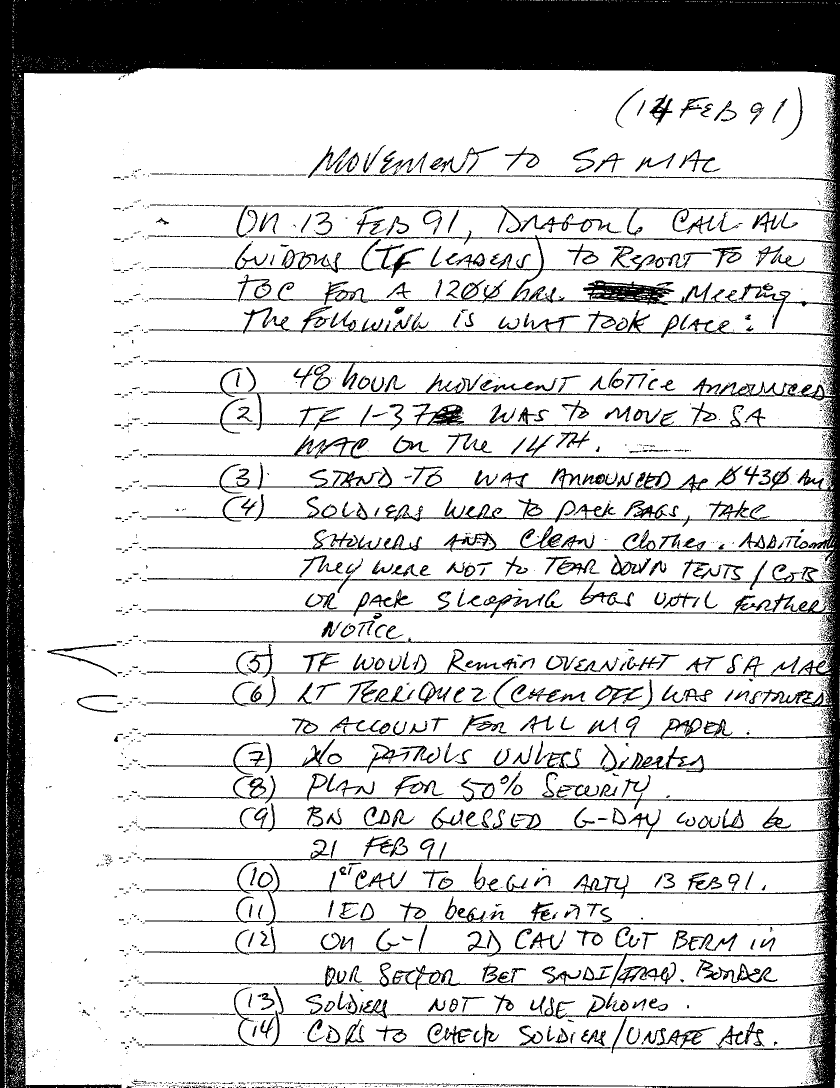 (14 FEB 91)
MOVEMENT TO SA MAC
ON 13 FEB 91, DRAGON 6 CALL ALL
GUIDONS (TF LEADERS) TO REPORT TO the
TOC FOR A 12ØØ hrs. Meeting.
The FOLLOWING IS WHAT TOOK PLACE:
(1) 48 hour MOVEMENT NOTICE ANNOUNCED
(2) TF 1-37 WAS TO MOVE TO SA
MAC ON The 14TH.
(3) STAND-TO WAS ANNOUNCED AS Ø43Ø Am
(4) SOLDIERS WERE TO PACK BAGS, TAKE
SHOWERS AND CLEAN CLOTHES. ADDITIONALLY
They WERE NOT to TEAR DOWN TENTS / COTS
OR PACK SLEEPING BAGS UNTIL FURTHER
NOTICE.
(5) TF WOULD REMAIN OVERNIGHT AT SA MAC
(6) LT TERRIQUEZ (CHEM OFF) WAS INSTRUTED
TO ACCOUNT FOR ALL M9 PAPER.
(7) NO PATROLS UNLESS DIRECTED
(8) PLAN FOR 50% SECURITY.
(9) BN CDR GUESSED G-DAY WOULD be
21 FEB 91
(10) 1ST CAV TO begin ARTY 13 FEB 91.
(11) 1ED TO begin FEINTS
(12) ON G-1 2D CAV TO CUT BERM in
OUR SECTOR BET SAUDI/IRAQ. BORDER
(13) SOLDIERS NOT TO USE phones.
(14) CDRS TO CHECK SOLDIERS/UNSAFE ACTS.